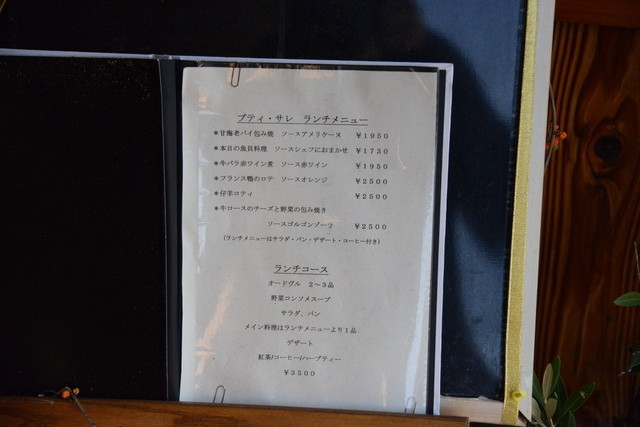 プティ・サレ ランチメニュー
＊甘海老パイ包み焼 ソースアメリケーヌ ￥１９５０
＊本日の魚貝料理 ソースシェフにおまかせ ￥１７３０
＊牛バラ赤ワイン煮 ソース赤ワイン ￥１９５０
＊フランス鴨のロテ ソースオレンジ ￥２５００
＊仔羊ロティ ￥２５００
＊牛ロースのチーズと野菜の包み焼き
ソースゴルゴンゾーラ ￥２５００
(ランチメニューはサラダ・パン・デザート・コーヒー付き)
ランチコース
オードヴル ２～３品
野菜コンソメスープ
サラダ、パン
メイン料理はランチメニューより１品
デザート
紅茶/コーヒー/ハーブティー
￥３５００